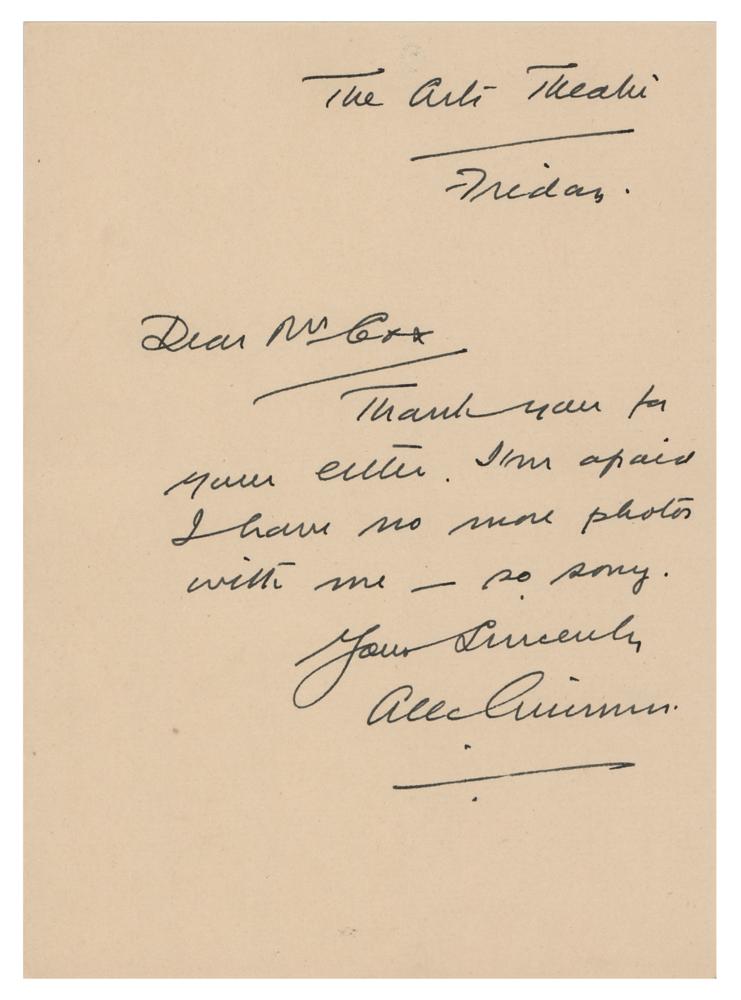 The Arts Theatre
Friday.
Dear Mrs Cox
Thank you for
your letter. I'm afraid
I have no more photos
with me — so sorry.
Yours Sincerely
Alec Guinness.